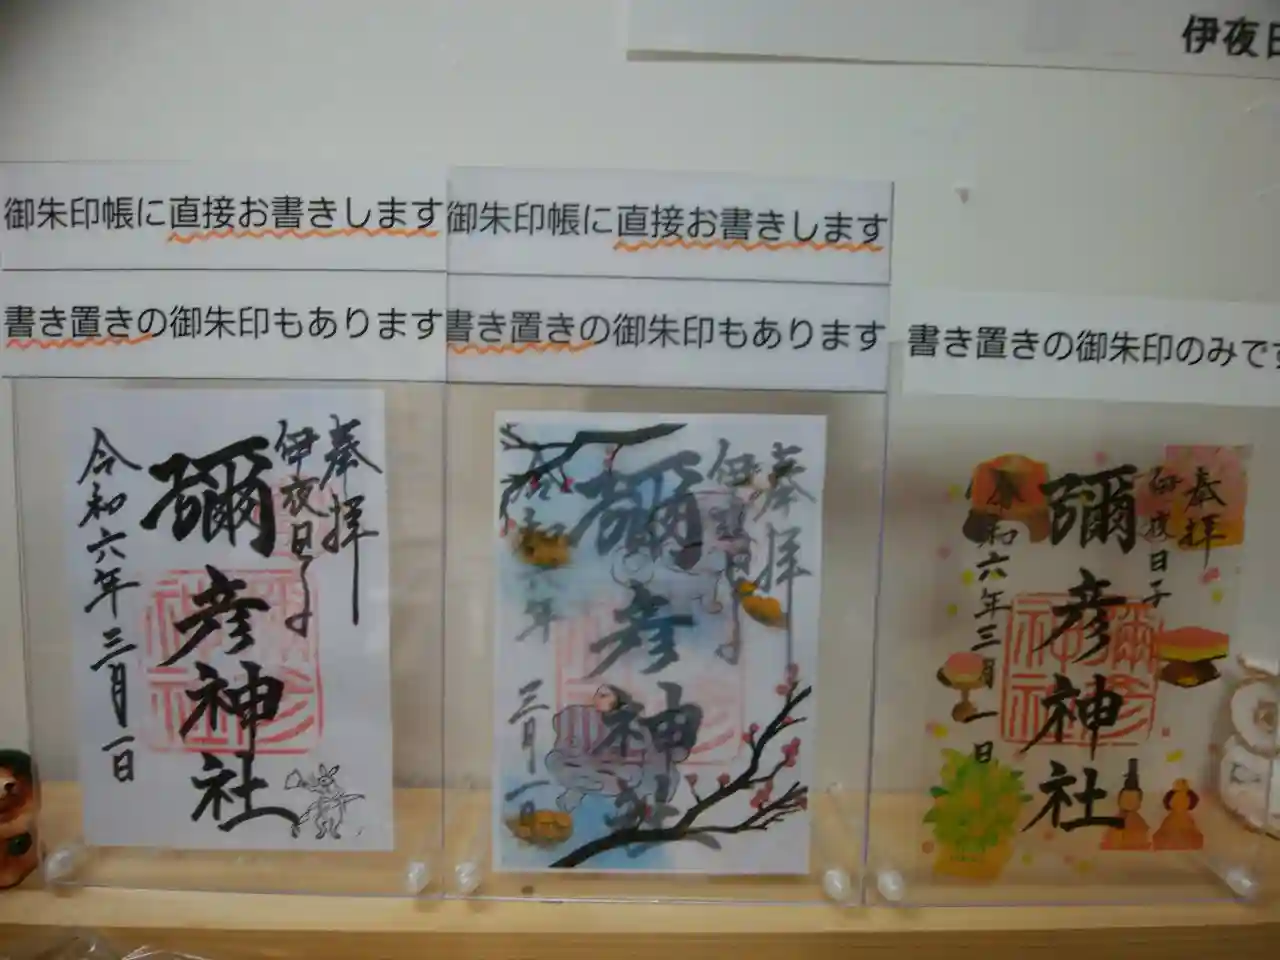 伊夜日
御朱印帳に直接お書きします
書き置きの御朱印もあります
奉拝
伊夜日子
彌彦神社
令和六年三月一日
御朱印帳に直接お書きします
書き置きの御朱印もあります
奉拝
伊夜日子
彌彦神社
令和六年三月一日
書き置きの御朱印のみです
奉拝
伊夜日子
彌彦神社
令和六年三月一日